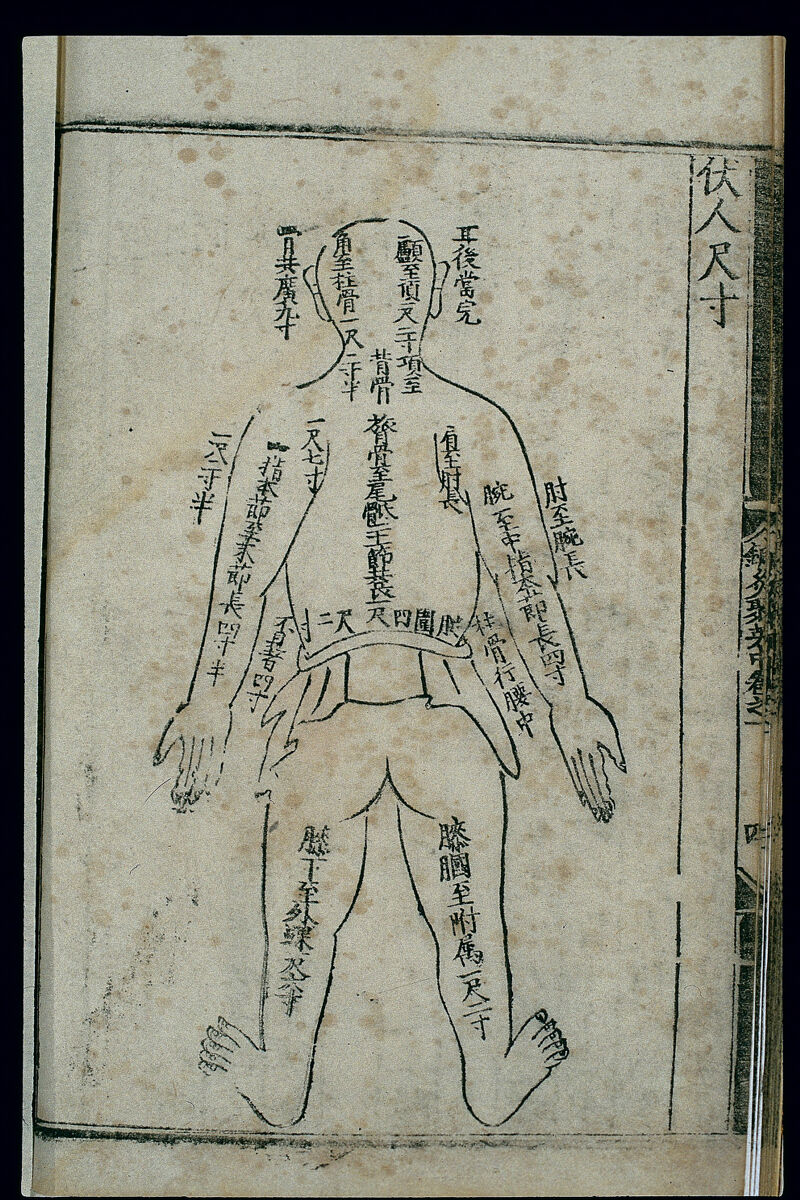 伏人尺寸
耳後當完
骨共廣九寸
顱至項一尺二寸項至
背骨
角至柱骨一尺
二寸半
肩至肘長
一尺七寸
膂骨至尾骶二十一節共長三尺
肘至腕長
一尺二寸半
腕至中指本節長四寸
指本節至末節長四寸半
腰圍四尺二寸
柱骨行腋中
不見者四寸
膝膕至附属一尺二寸
膝下至外踝一尺六寸